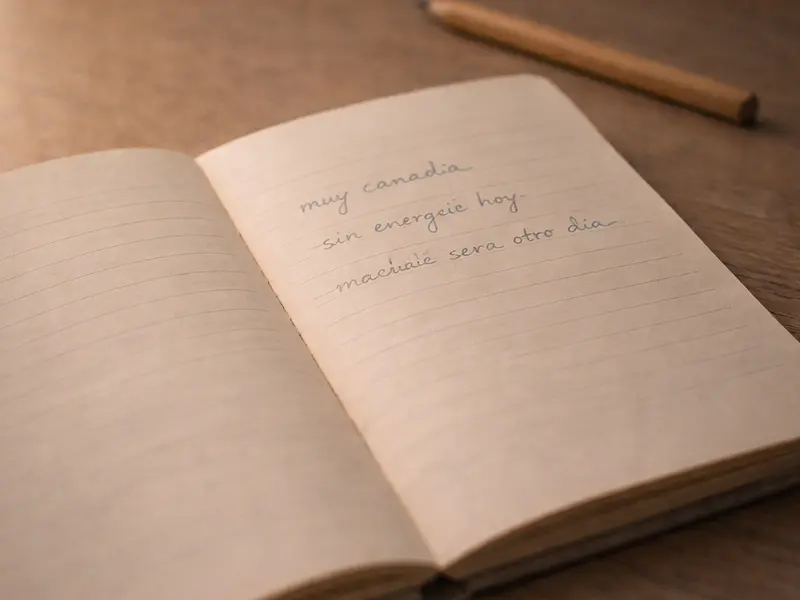 muy canadia
sin energeie hoy.
sera otro dia